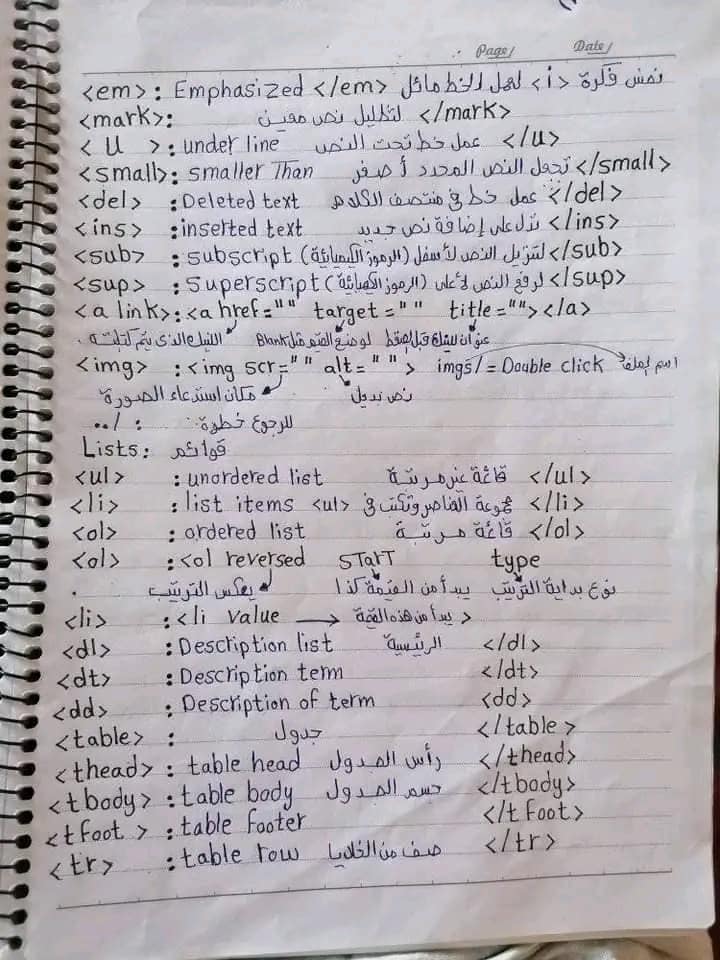 Page/ Date/
<em>: Emphasized </em> نفس فكرة <i> لعمل الخط مائل
<mark>: لتظليل نص معين </mark>
< U >: under line عمل خط تحت النص </u>
<small>: smaller Than تحول النص المحدد أصغر </small>
<del> :Deleted text عمل خط في منتصف الكلام </del>
<ins> :inserted text تدل على إضافة نص جديد </ins>
<sub> :subscript (الرموز الكيميائية) لتنزيل النص لأسفل </sub>
<sup> :superscript (الرموز الكيميائية) لرفع النص لأعلى </sup>
<a link>:<a href="" target="" title=""></a>
اللينك الذي يتم كتابته . لو وضع القيم مثل Blank عنوان للينك قبل الضغط
<img> :<img scr="" alt=""> imgs/= Double click اسم الملف
مكان استدعاء الصورة نص بديل
للرجوع خطوة : /..
Lists: قوائم
<ul> :unordered list قائمة غير مرتبة </ul>
<li> :list items <ul> مجموعة العناصر وتكتب في </li>
<ol> :ordered list قائمة مرتبة </ol>
<ol> :<ol reversed START type
يعكس الترتيب يبدأ من القيمة كذا نوع بداية الترتيب .
<li> :<li value → يبدأ من هذه القيمة >
<dl> :Description list الرئيسية </dl>
<dt> :Description term </dt>
<dd> :Description of term <dd>
<table> : جدول </table>
<thead> : table head رأس الجدول </thead>
<tbody> :table body جسم الجدول </tbody>
<tfoot > :table footer </t foot>
<tr> :table row صف من الخلايا </tr>